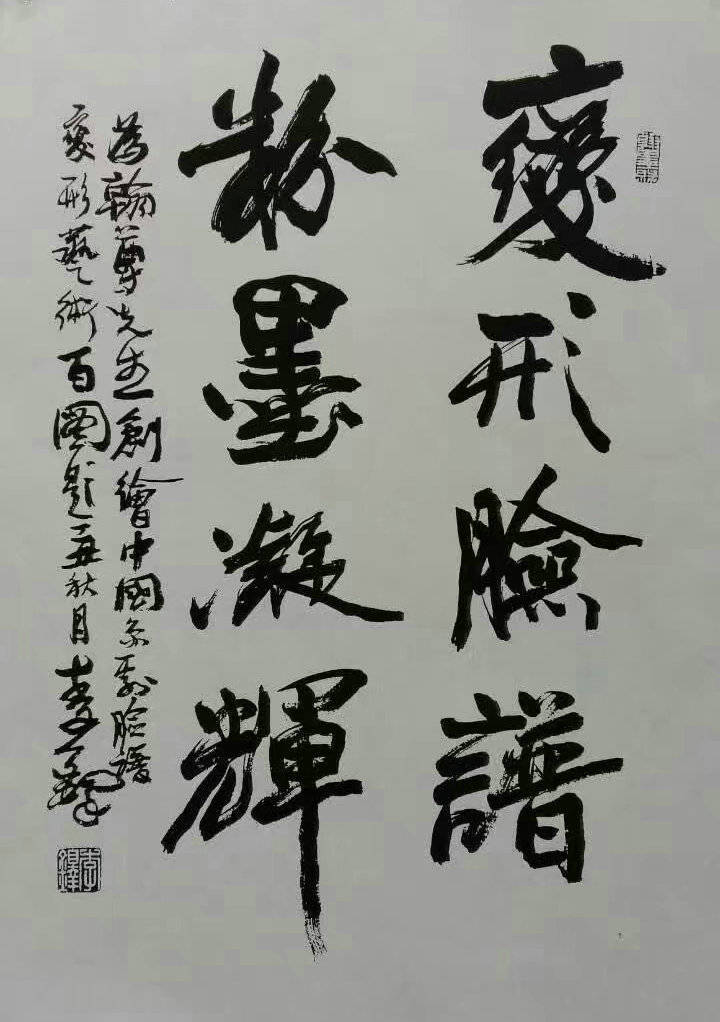 變形臉譜
粉墨凝輝
為翰尊先生創繪中國京劇臉譜
變形藝術百圖題 秋月 李鐸
李鐸